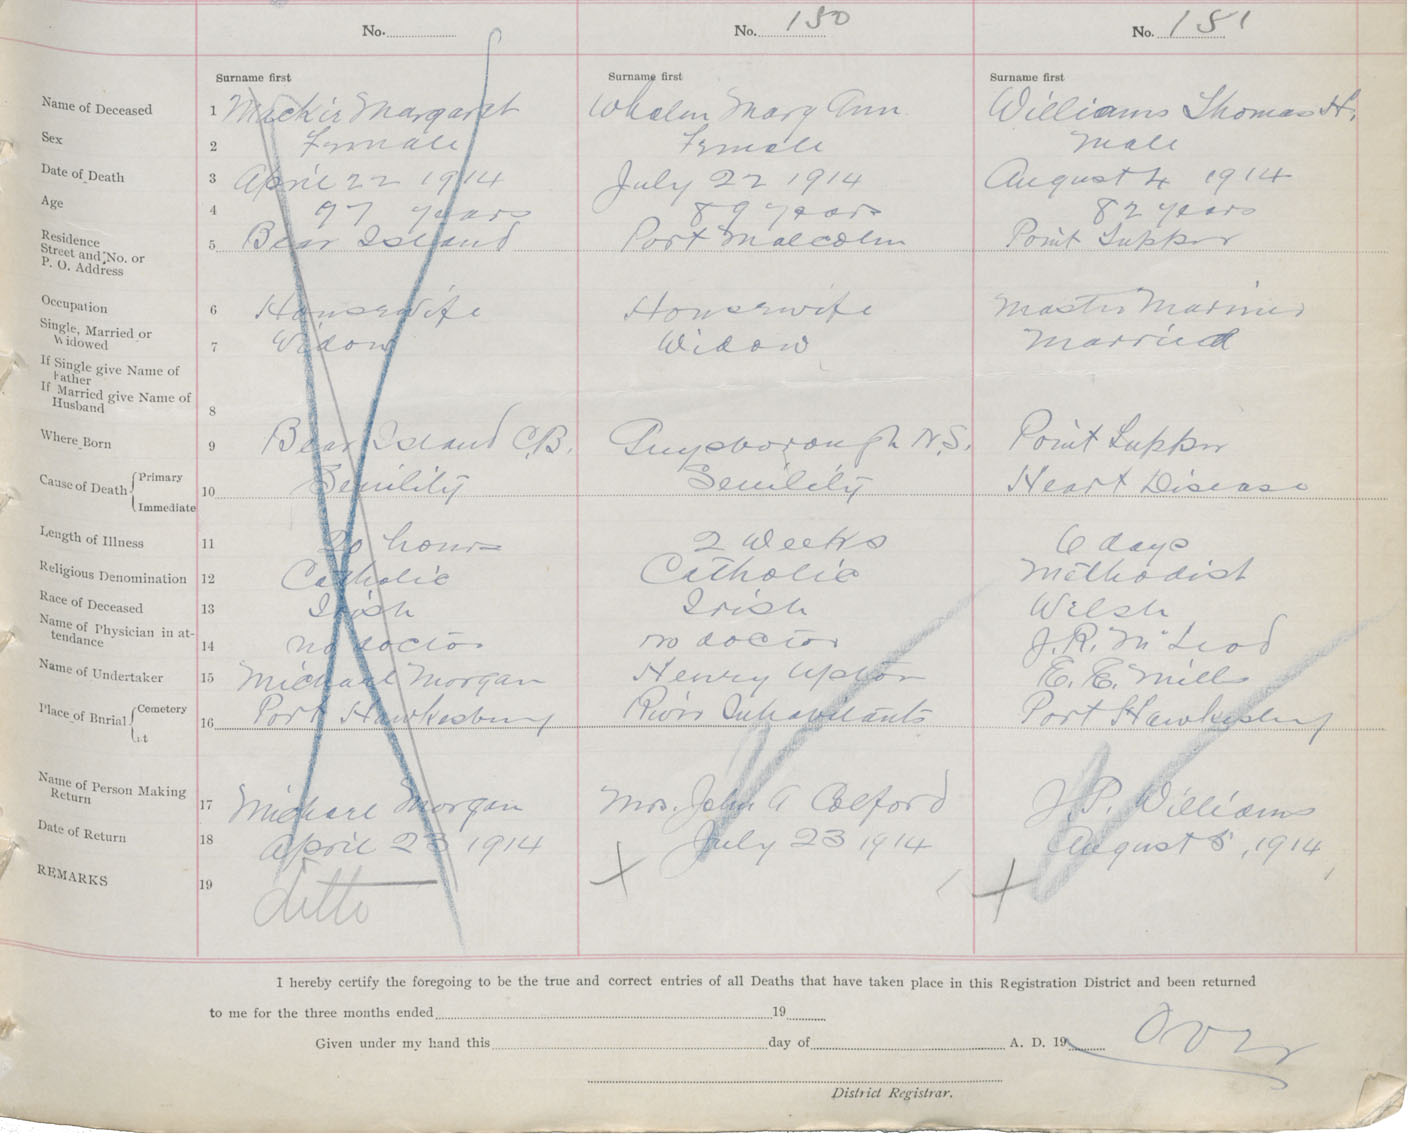 No. No. 150 No. 151
Surname first Surname first Surname first
Name of Deceased 1 Mickie Margaret Whalen Mary Ann Williams Thomas H.
Sex 2 Female Female Male
Date of Death 3 April 22 1914 July 22 1914 August 4 1914
Age 4 97 years 89 years 82 years
Residence
Street and No. or
P. O. Address
5 Bear Island Port Malcolm Point Tupper
Occupation 6 Housewife Housewife Master Mariner
Single, Married or
Widowed
7 Widow Widow Married
If Single give Name of
Father
If Married give Name of
Husband
8
Where Born 9 Bear Island C.B. Guysborough N.S. Point Tupper
Cause of Death Primary
10 Senility Senility Heart Disease
Immediate
Length of Illness 11 20 hours 2 Weeks 6 days
Religious Denomination 12 Catholic Catholic Methodist
Race of Deceased 13 Irish Irish Welsh
Name of Physician in at-
tendance
14 no doctor no doctor J.R. McLeod
Name of Undertaker 15 Michael Morgan Henry Upton E. E. Mills
Place of Burial Cemetery
16 Port Hawkesbury River Inhabitants Port Hawkesbury
Name of Person Making
Return
17 Michael Morgan Mrs. John A Colford J. P. Williams
Date of Return 18 April 23 1914 July 23 1914 August 5, 1914
REMARKS 19 ditto
I hereby certify the foregoing to be the true and correct entries of all Deaths that have taken place in this Registration District and been returned
to me for the three months ended 19
Given under my hand this day of A. D. 19
Over
District Registrar.